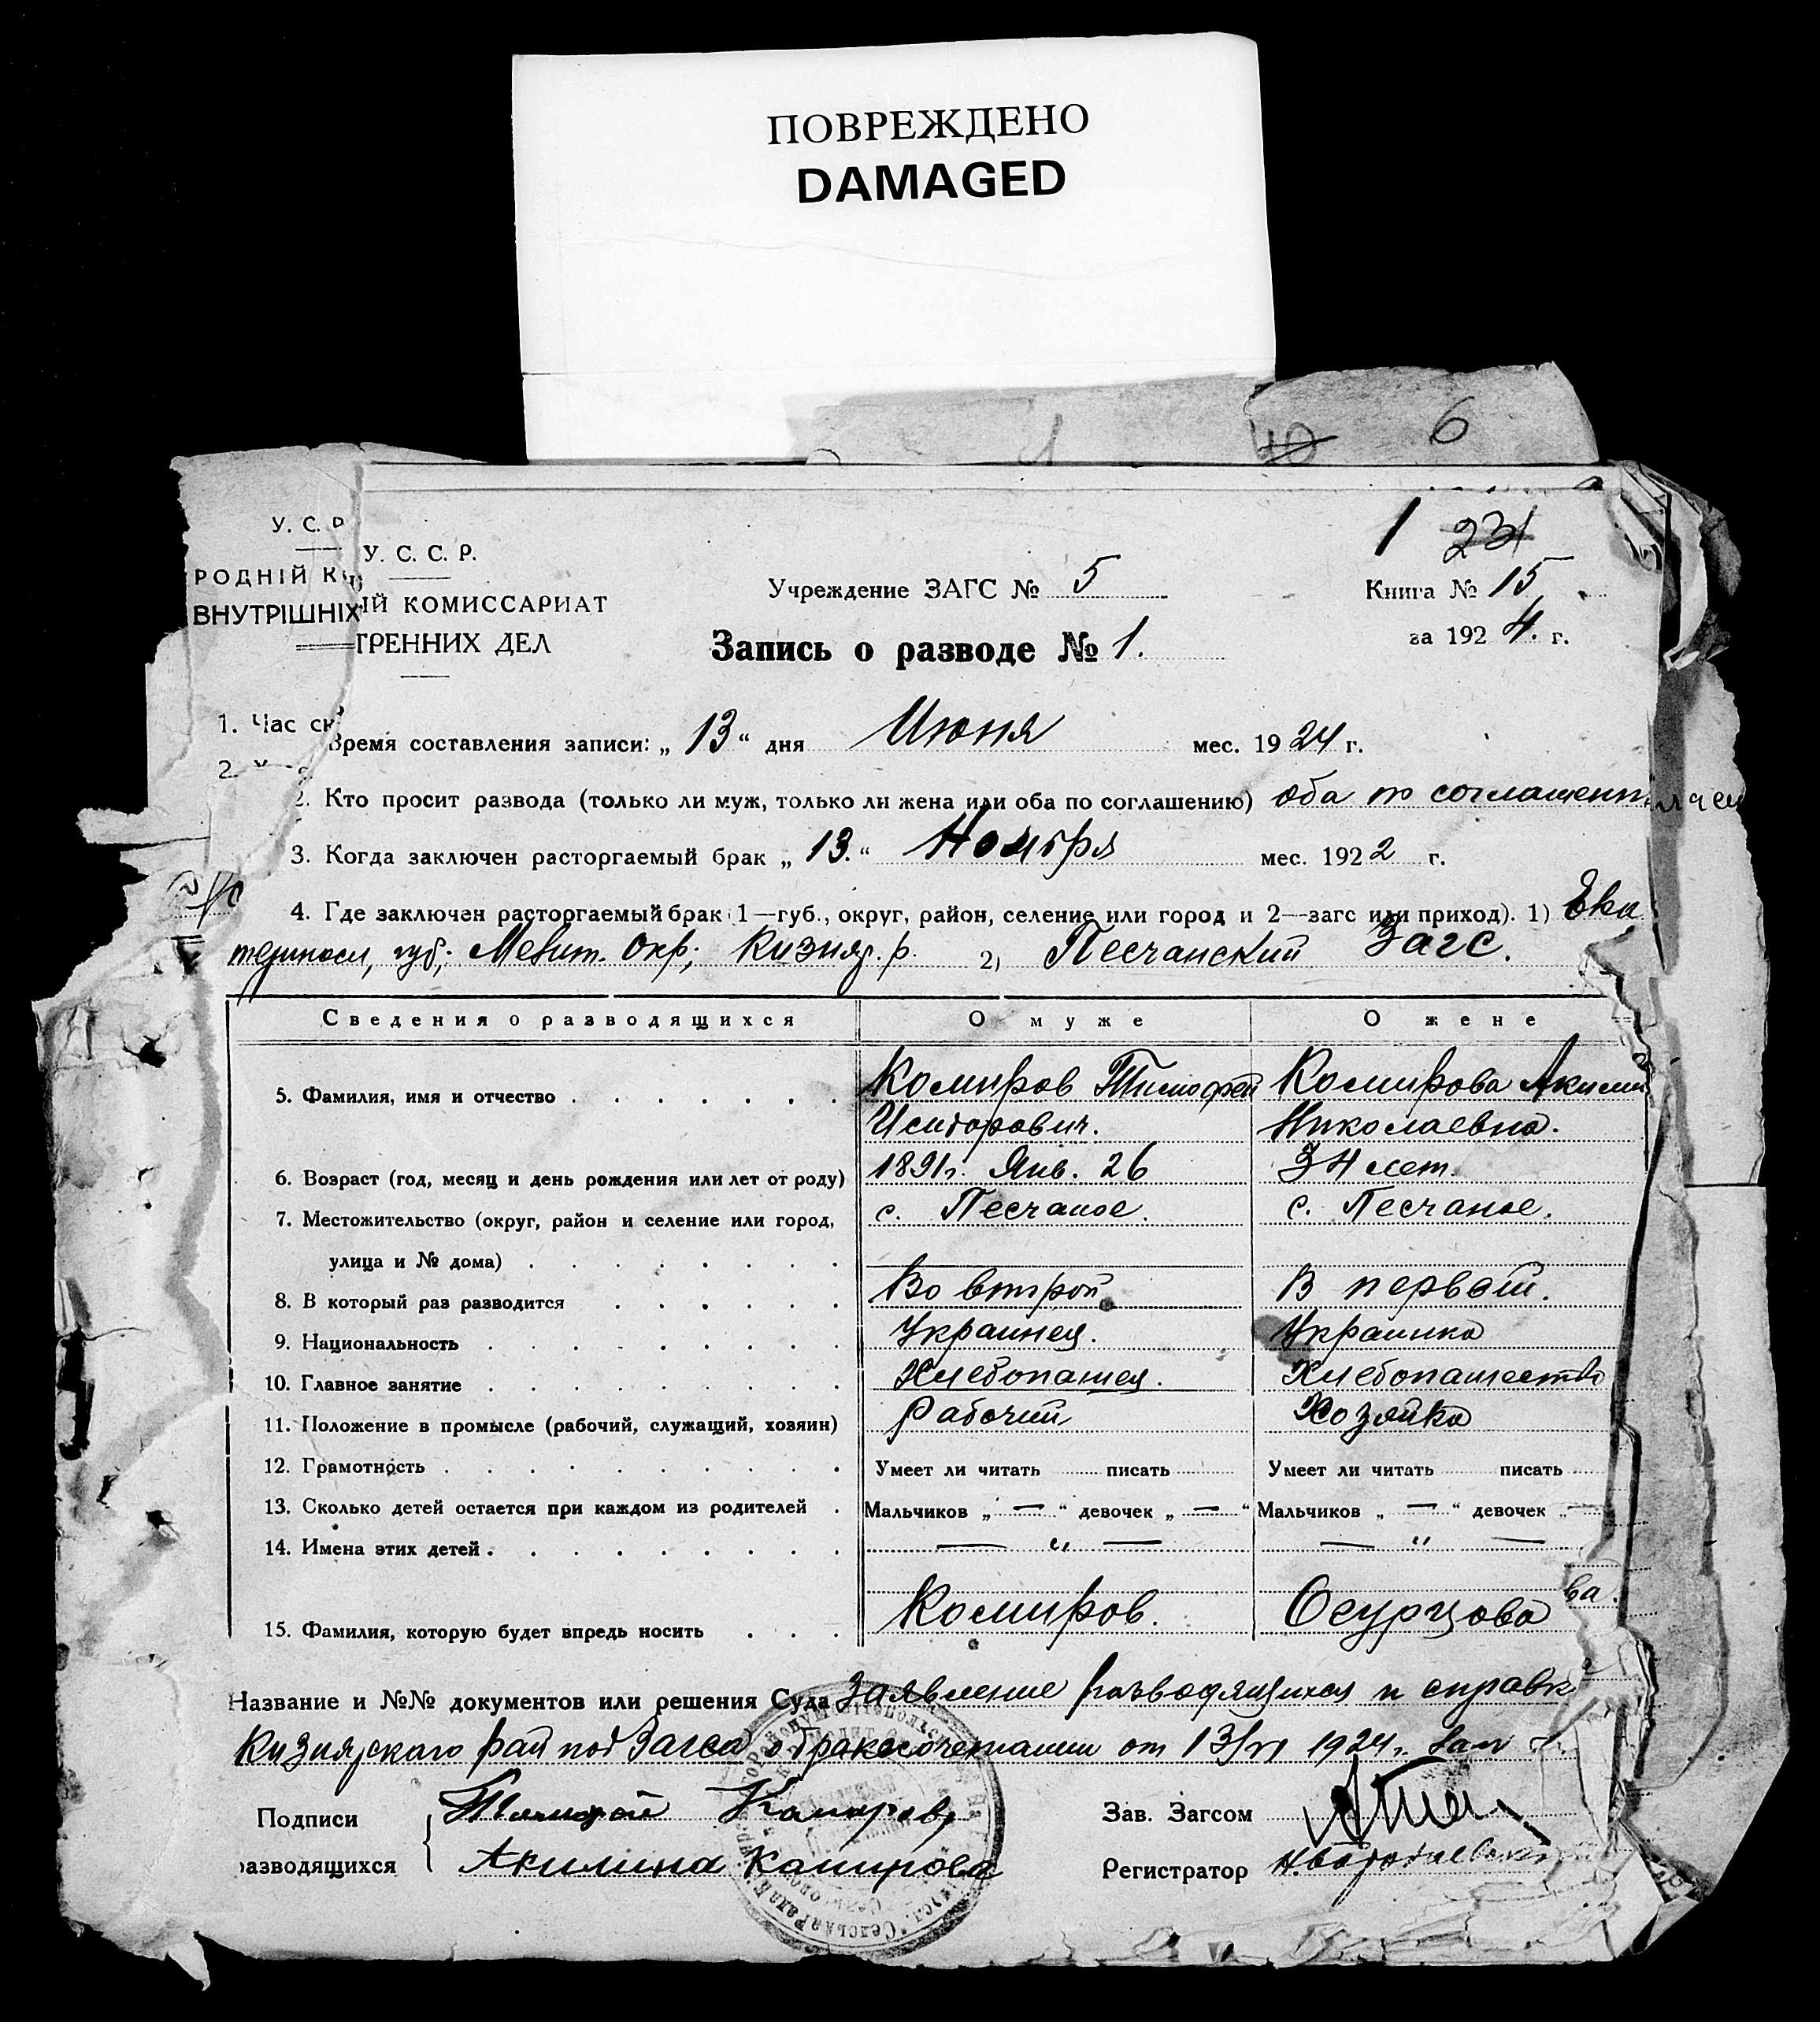 ПОВРЕЖДЕНО
DAMAGED
40 6
1 231
У. С. Р
РОДНІЙ К
ВНУТРІШНІХ
У. С. С. Р.
ИЙ КОМИССАРИАТ
ТРЕННИХ ДЕЛ
Учреждение ЗАГС № 5
Книга № 15
за 1924. г.
Запись о разводе № 1.
1. Час ск
Время составления записи: „ 13 “ дня Июня мес. 1924 г.
2.
2. Кто просит развода (только ли муж, только ли жена или оба по соглашению) оба по соглашени
3. Когда заключен расторгаемый брак „ 13. “ Ноября мес. 1922 г.
4. Где заключен расторгаемый брак (1—губ., округ, район, селение или город и 2—загс или приход). 1) Ека
териносл, губ; Мелит. Окр; Кизияр. р. 2) Песчанский Загс.
Сведения о разводящихся О муже О жене
5. Фамилия, имя и отчество Комиров Тимофей Комирова Акилин
Исидорович. Николаевна.
6. Возраст (год, месяц и день рождения или лет от роду) 1891г. Янв. 26 34 лет.
7. Местожительство (округ, район и селение или город, с. Песчаное. с. Песчаное.
улица и № дома)
8. В который раз разводится Во второй В первый.
9. Национальность Украинец. Украинка
10. Главное занятие Хлебопашец. Хлебопашество
11. Положение в промысле (рабочий, служащий, хозяин) Рабочий Хозяйка
12. Грамотность Умеет ли читать писать Умеет ли читать писать
13. Сколько детей остается при каждом из родителей Мальчиков „ — “ девочек „ — “ Мальчиков „ — “ девочек „ —
14. Имена этих детей — „ — — „ —
ва.
15. Фамилия, которую будет впредь носить Комиров. Осурцова
Название и №№ документов или решения Суда Заявление разводящихся и справк
Кизиярскаго рай под Загса о бракосочетании от 13/VI 1924г.
Подписи Тимофей Комиров Зав. Загсом
разводящихся Акилина Комирова Регистратор